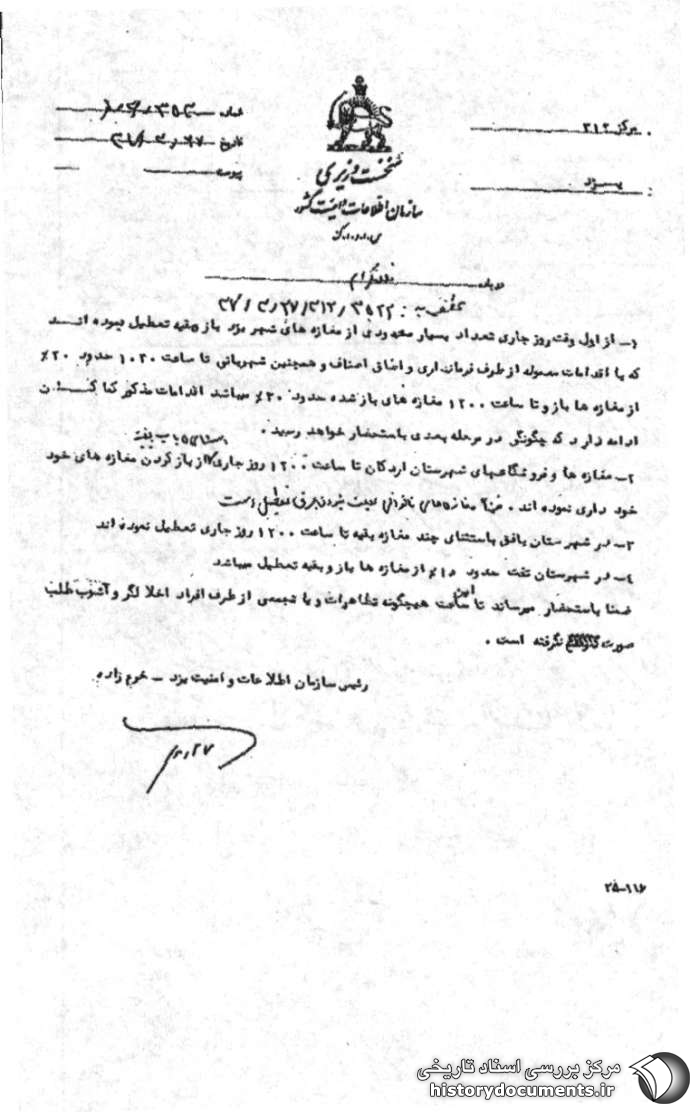 مرکز ۳۱۲
یزد
شماره
تاریخ
پیوست
نخست وزیری
سازمان اطلاعات و امنیت کشور
س.ا.و.ا.ک
درباره
عطف به : ۳۵۲۲/۳۱۲/
۱- از اول وقت روز جاری تعداد بسیار معدودی از مغازه های شهر یزد باز و بقیه تعطیل نموده انـــد
که با اقدامات معموله از طرف فرمانداری و اطاق اصناف و همچنین شهربانی تا ساعت ۱۰۳۰ حدود ۲۰٪
از مغازه ها باز و تا ساعت ۱۲۰۰ مغازه های باز شده حدود ۳۰٪ میباشد اقدامات مذکور کماکـــان
ادامه دارد که چگونگی در مرحله بعدی باستحضار خواهد رسید .
۲- مغازه ها و فروشگاههای شهرستان اردکان تا ساعت ۱۲۰۰ روز جاری از باز کردن مغازه های خود
خود داری نموده اند . ضمناً مغازه‌های نانوائی بعلت نبودن برق تعطیل است
۳- در شهرستان بافق باستثنای چند مغازه بقیه تا ساعت ۱۲۰۰ روز جاری تعطیل نموده اند
۴- در شهرستان تفت حدود ۱۵٪ از مغازه ها باز و بقیه تعطیل میباشد
ضمنا باستحضار میرساند تا این ساعت هیچگونه تظاهرات و یا تجمعی از طرف افراد اخلالگر و آشوب طلب
صورت نگرفته است .
رئیس سازمان اطلاعات و امنیت یزد - خرم زاده
۲۵-۱۱۶
مرکز بررسی اسناد تاریخی
historydocuments.ir